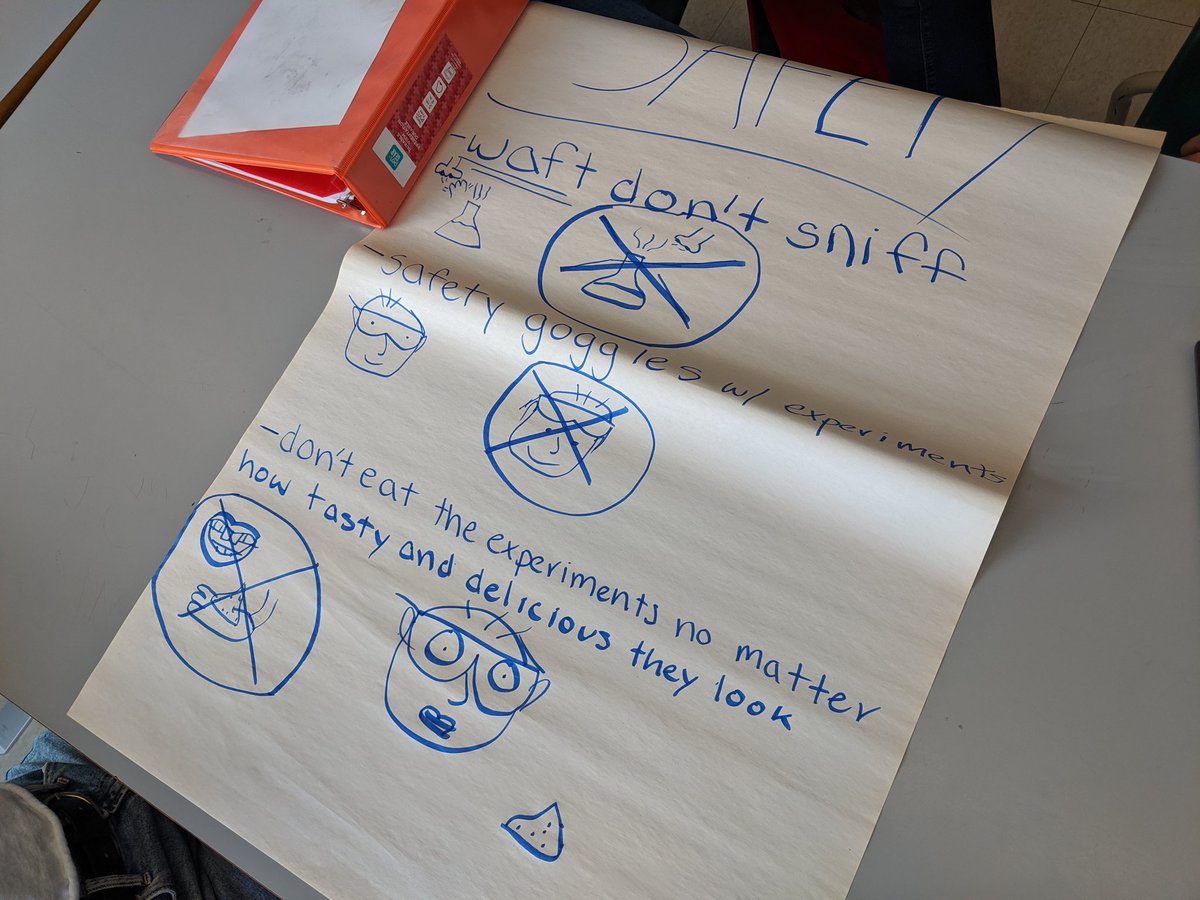 SAFETY
-waft don't sniff
-safety goggles w/ experiments
-don't eat the experiments no matter
how tasty and delicious they look